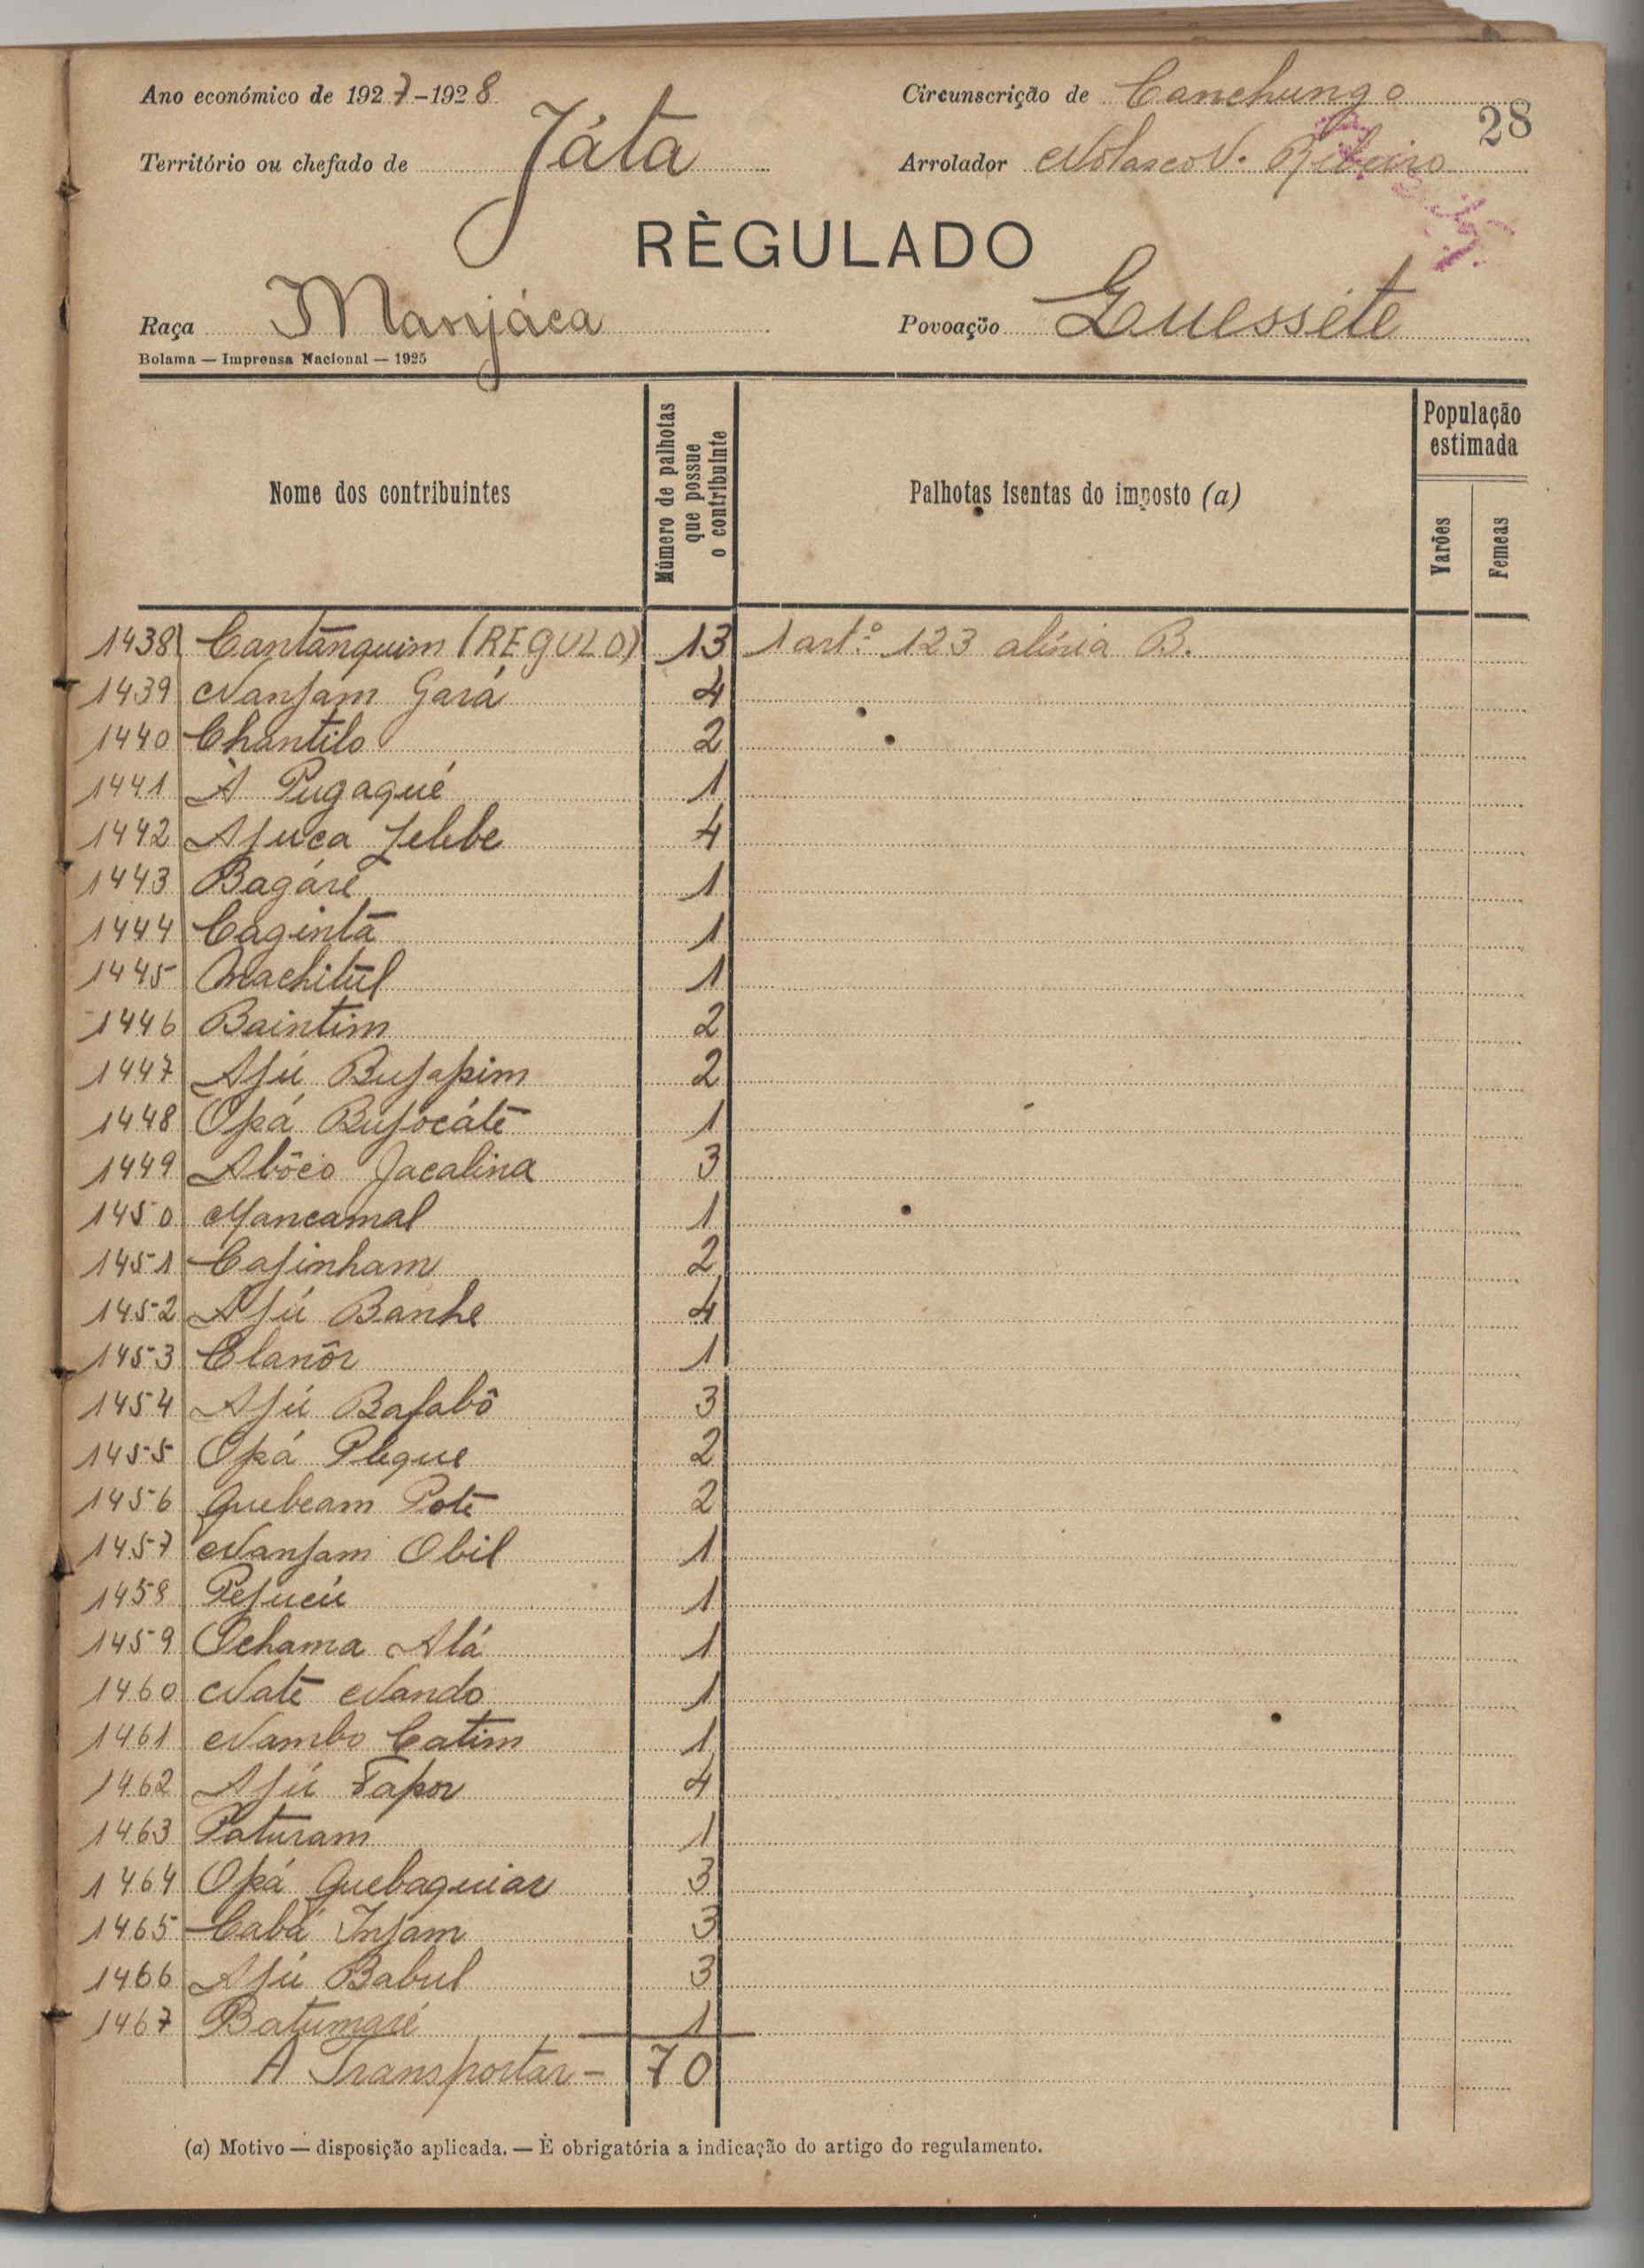 Ano económico de 1927-1928
Circunscrição de Canchungo
28
Território ou chefado de Játa
Arrolador Nolasco V. Ribeiro
RÈGULADO
Raça Manjáca
Povoação
Bolama — Imprensa Nacional — 1925
Nome dos contribuintes
Número de palhotas que possue o contribuinte
Palhotas isentas do imposto (a)
População estimada
Varões
Femeas
1438 Cantanquim (REGULO) 13 1 artº 123 alínia B.
1439 Nanjam Gará 4
1440 Chantilo 2
1441 À Pugaqué 1
1442 Ajuca Jelebe 4
1443 Bagáré 1
1444 Caginta 1
1445 Machitul 1
1446 Baintim 2
1447 Ajú Bujapim 2
1448 Opá Bujocáte 1
1449 Abôco Jacalina 3
1450 Mancamal 1
1451 Cajinham 2
1452 Ajú Banhe 4
1453 Clanôr 1
1454 Ajú Bajabô 3
1455 Opá Pleque 2
1456 Quebeam Pote 2
1457 Nanjam Obil 1
1458 Pejucú 1
1459 Ochama Alá 1
1460 Nate Nando 1
1461 Nambo Catim 1
1462 Ajú Tapor 4
1463 Paturam 1
1464 Opá Quebaquiar 3
1465 Cabá Injam 3
1466 Ajú Babul 3
1467 Batumaré 1
A Transportar - 70
(a) Motivo — disposição aplicada. — È obrigatória a indicação do artigo do regulamento.